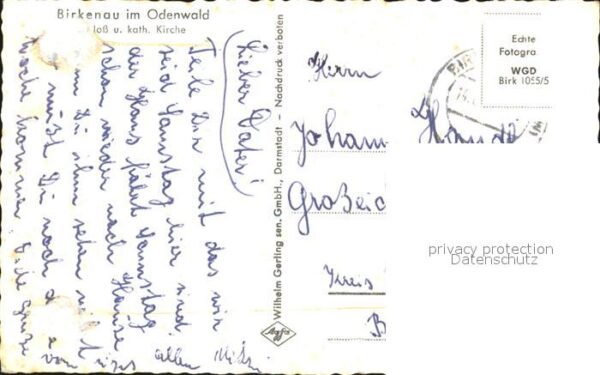 Birkenau im Odenwald
loß u. kath. Kirche
Lieber Vater!
Teile Dir mit das wir
seid Samstag hier sind
der Hans fährt Samstag
schon wieder nach Hause
Du ihn sehen
mußt Du noch
Woche kommen. Viele Grüße
von allen
Wilhelm Gerling sen. GmbH., Darmstadt - Nachdruck verboten
Agfa
Herrn
Johann
Großeic
Kreis
B
Echte
Fotogra
WGD
Birk 1055/5
privacy protection
Datenschutz